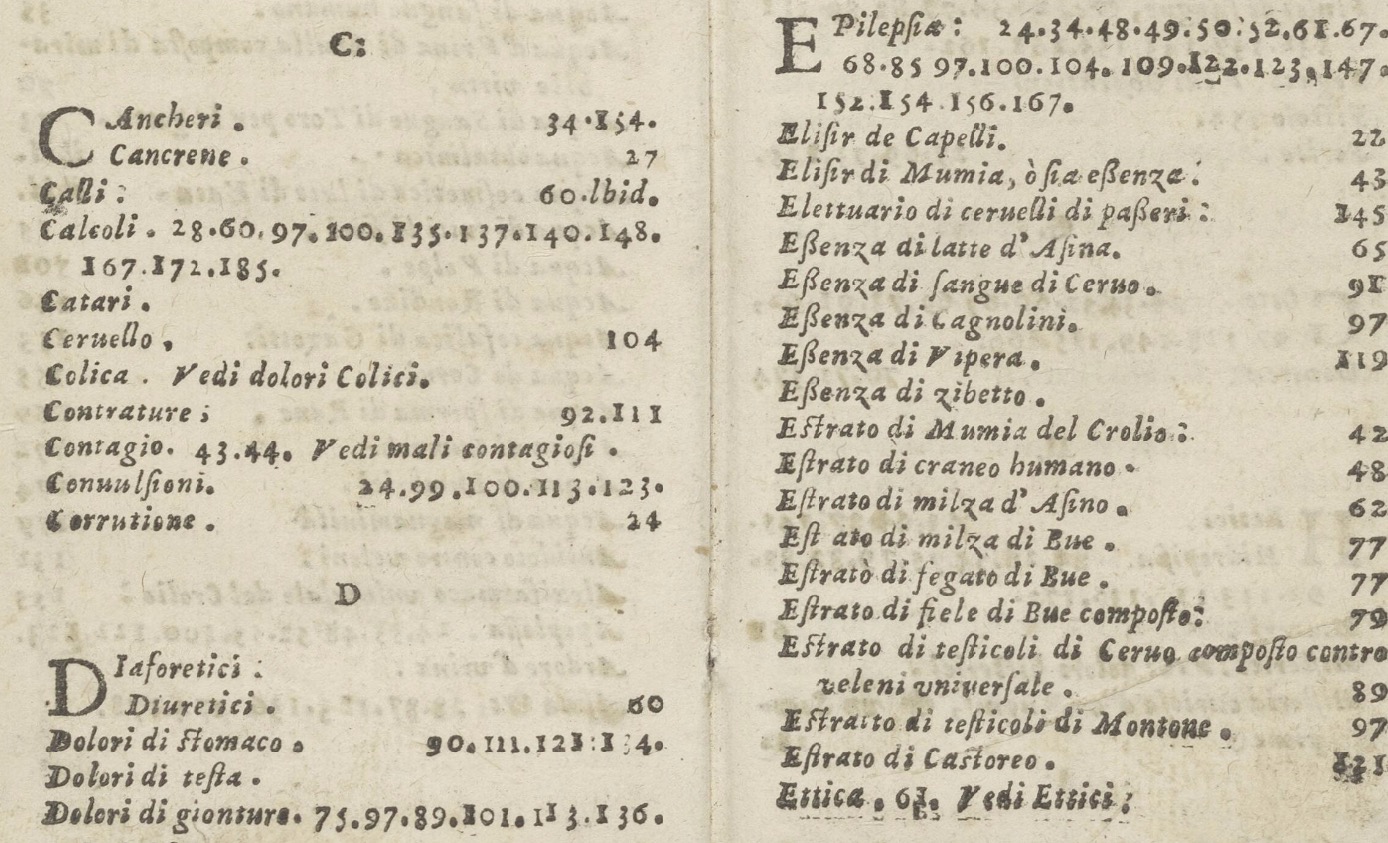 C:
CAncheri . 34.154.
Cancrene . 27
Calli : 60.lbid.
Calcoli . 28.60.97.100.135.137.140.148.
167.172.185.
Catari .
Ceruello , 104
Colica . Vedi dolori Colici.
Contrature ; 92.111
Contagio. 43.44. Vedi mali contagiosi .
Conuulsioni. 24.99.100.113.123.
Corrutione . 24
D
DIaforetici :
Diuretici . 60
Dolori di stomaco . 90.111.121:134.
Dolori di testa .
Dolori di gionture. 75.97.89.101.113.136.
EPilepsiæ : 24.34.48.49.50.52.61.67.
68.85 97.100.104.109.122.123.147.
152.154.156.167.
Elisir de Capelli. 22
Elisir di Mumia, ò sia eßenza : 43
Elettuario di ceruelli di paßeri : 145
Eßenza di latte d' Asina. 65
Eßenza di sangue di Ceruo . 91
Eßenza di Cagnolini. 97
Eßenza di Vipera . 119
Eßenza di zibetto .
Estrato di Mumia del Crolio : 42
Estrato di craneo humano . 48
Estrato di milza d' Asino . 62
Est ato di milza di Bue . 77
Estratò di fegato di Bue . 77
Estrato di fiele di Bue composto: 79
Estrato di testicoli di Ceruo composto contro
veleni vniversale . 89
Estratto di testicoli di Montone . 97
Estrato di Castoreo . 121
Ettica . 61. Vedi Ettici ;